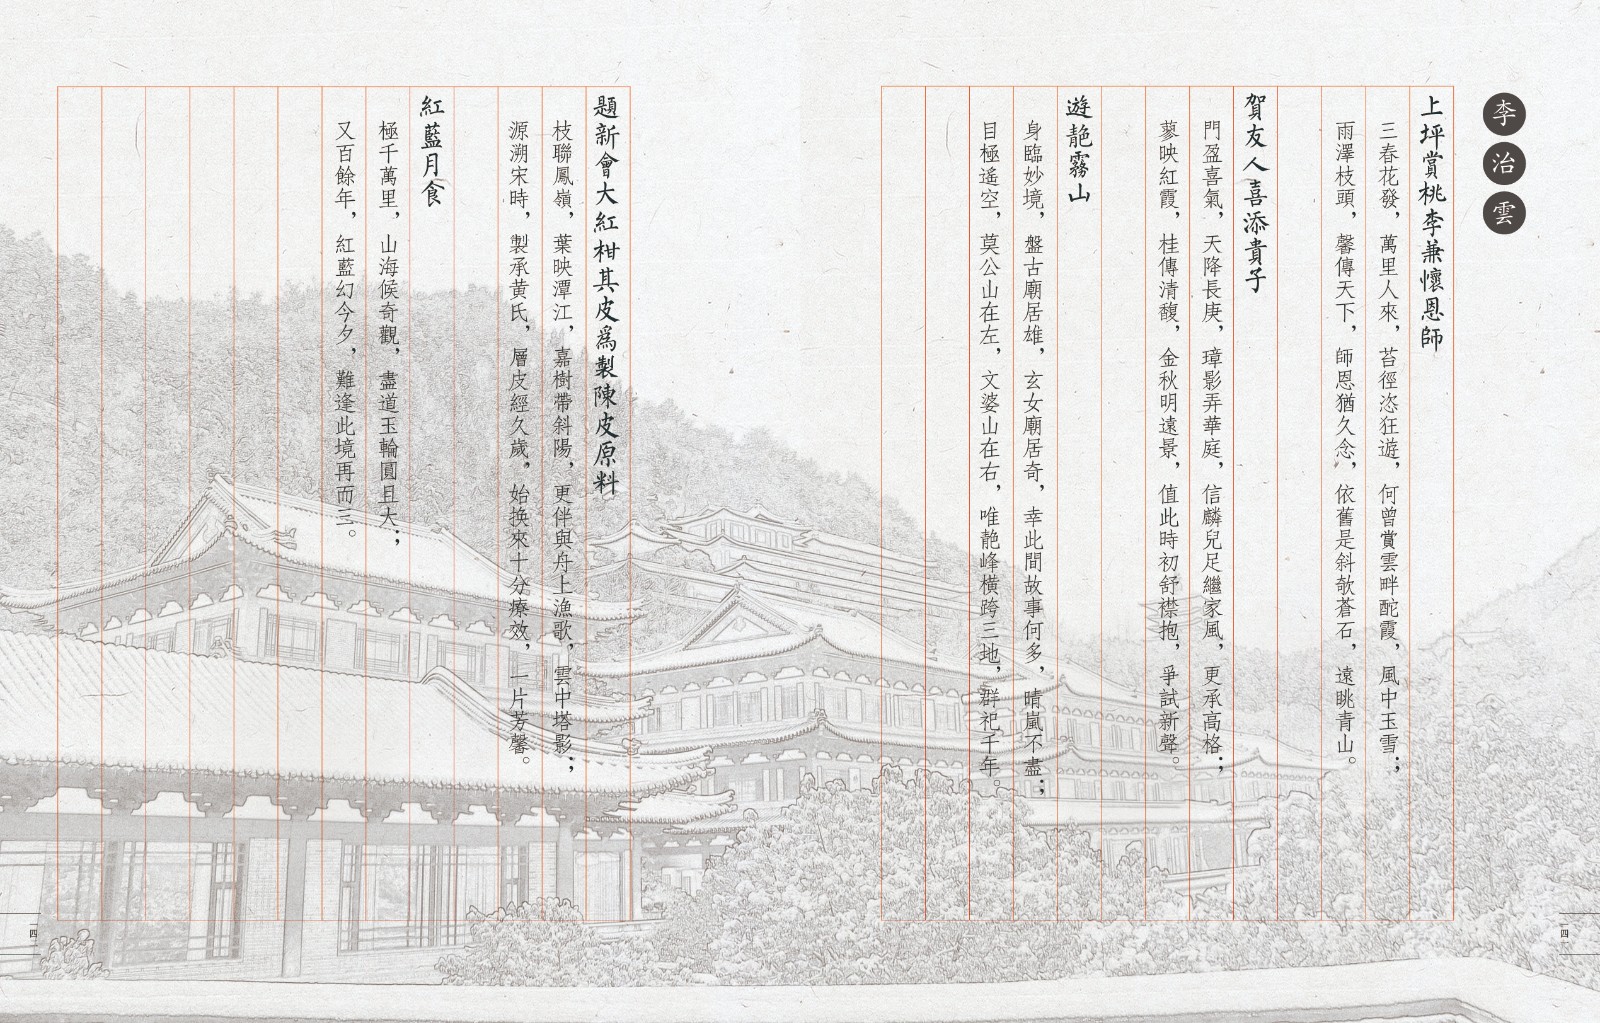 李治雲
上坪賞桃李兼懷恩師
三春花發，萬里人來，苔徑恣狂遊，何曾賞雲畔酡霞，風中玉雪；
雨澤枝頭，馨傳天下，師恩猶久念，依舊是斜欹蒼石，遠眺青山。
賀友人喜添貴子
門盈喜氣，天降長庚，璋影弄華庭，信麟兒足繼家風，更承高格；
蓼映紅霞，桂傳清馥，金秋明遠景，值此時初舒襟抱，爭試新聲。
遊靘霧山
身臨妙境，盤古廟居雄，玄女廟居奇，幸此間故事何多，晴嵐不盡；
目極遙空，莫公山在左，文婆山在右，唯靘峰橫跨三地，群祀千年。
題新會大紅柑其皮爲製陳皮原料
枝聯鳳嶺，葉映潭江，嘉樹帶斜陽，更伴與舟上漁歌，雲中塔影；
源溯宋時，製承黃氏，層皮經久歲，始換來十分療效，一片芳馨。
紅藍月食
極千萬里，山海候奇觀，盡道玉輪圓且大；
又百餘年，紅藍幻今夕，難逢此境再而三。